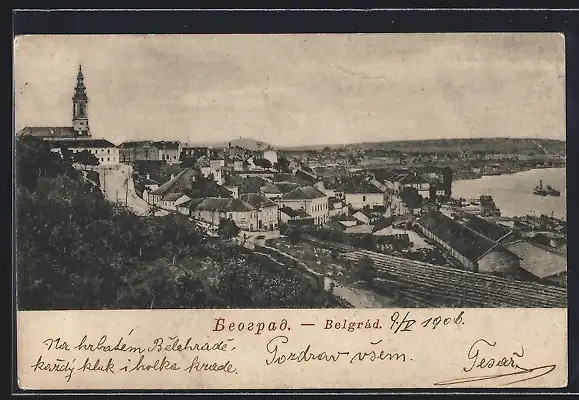 Београд. – Belgrád. 9/V 1906.
Na hrbatém Bělehradě,
každý kluk i holka krade.
Pozdrav všem.
Tesař